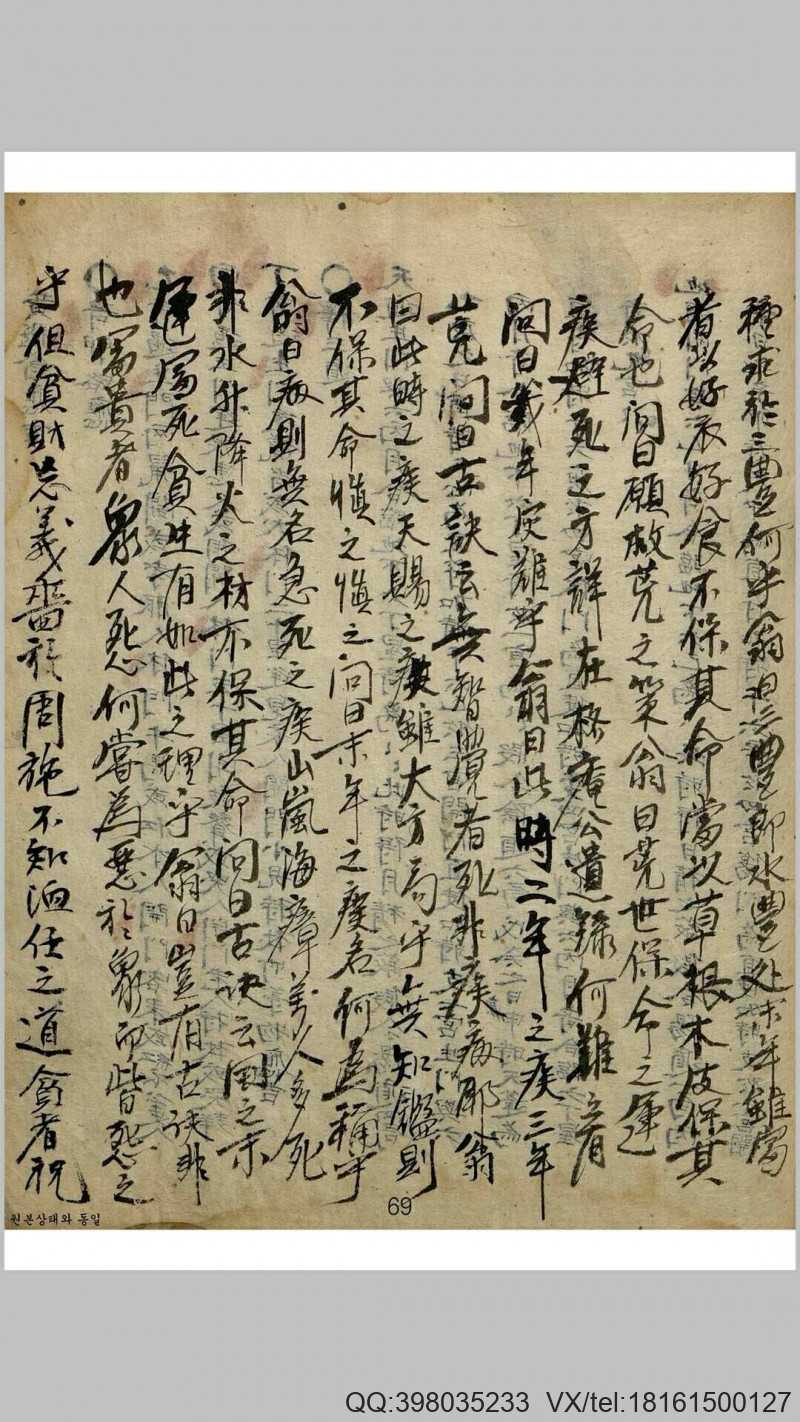 種求於三豐何乎翁曰三豊卽水豊处末年雖富
者以好衣好食不保其命當以草根木皮保其
命也問曰願救荒之策翁曰荒世保命之運
疾避死之方詳在格庵公遺錄何難之有
問曰幾年灾難乎翁曰此時二年之疾三年
荒問曰古訣云無智覺者死非疾病耶翁
曰此時之疾天賜之疾雖大方局乎無知鑑則
不保其命愼之愼之問曰末年之疾名何爲稱乎
翁曰病則無名急死之疾山嵐海瘴萬人多死
非水升降火之材不保其命問曰古訣云國之末
運富死貧生有如此之理乎翁曰豈有古訣非
也富貴者衆人怨何嘗爲惡於衆而皆怨之
守但貪財忘義嗇於周施不知 任之道貧者祝
원본상태와 동일
69
QQ:398035233 VX/tel:18161500127